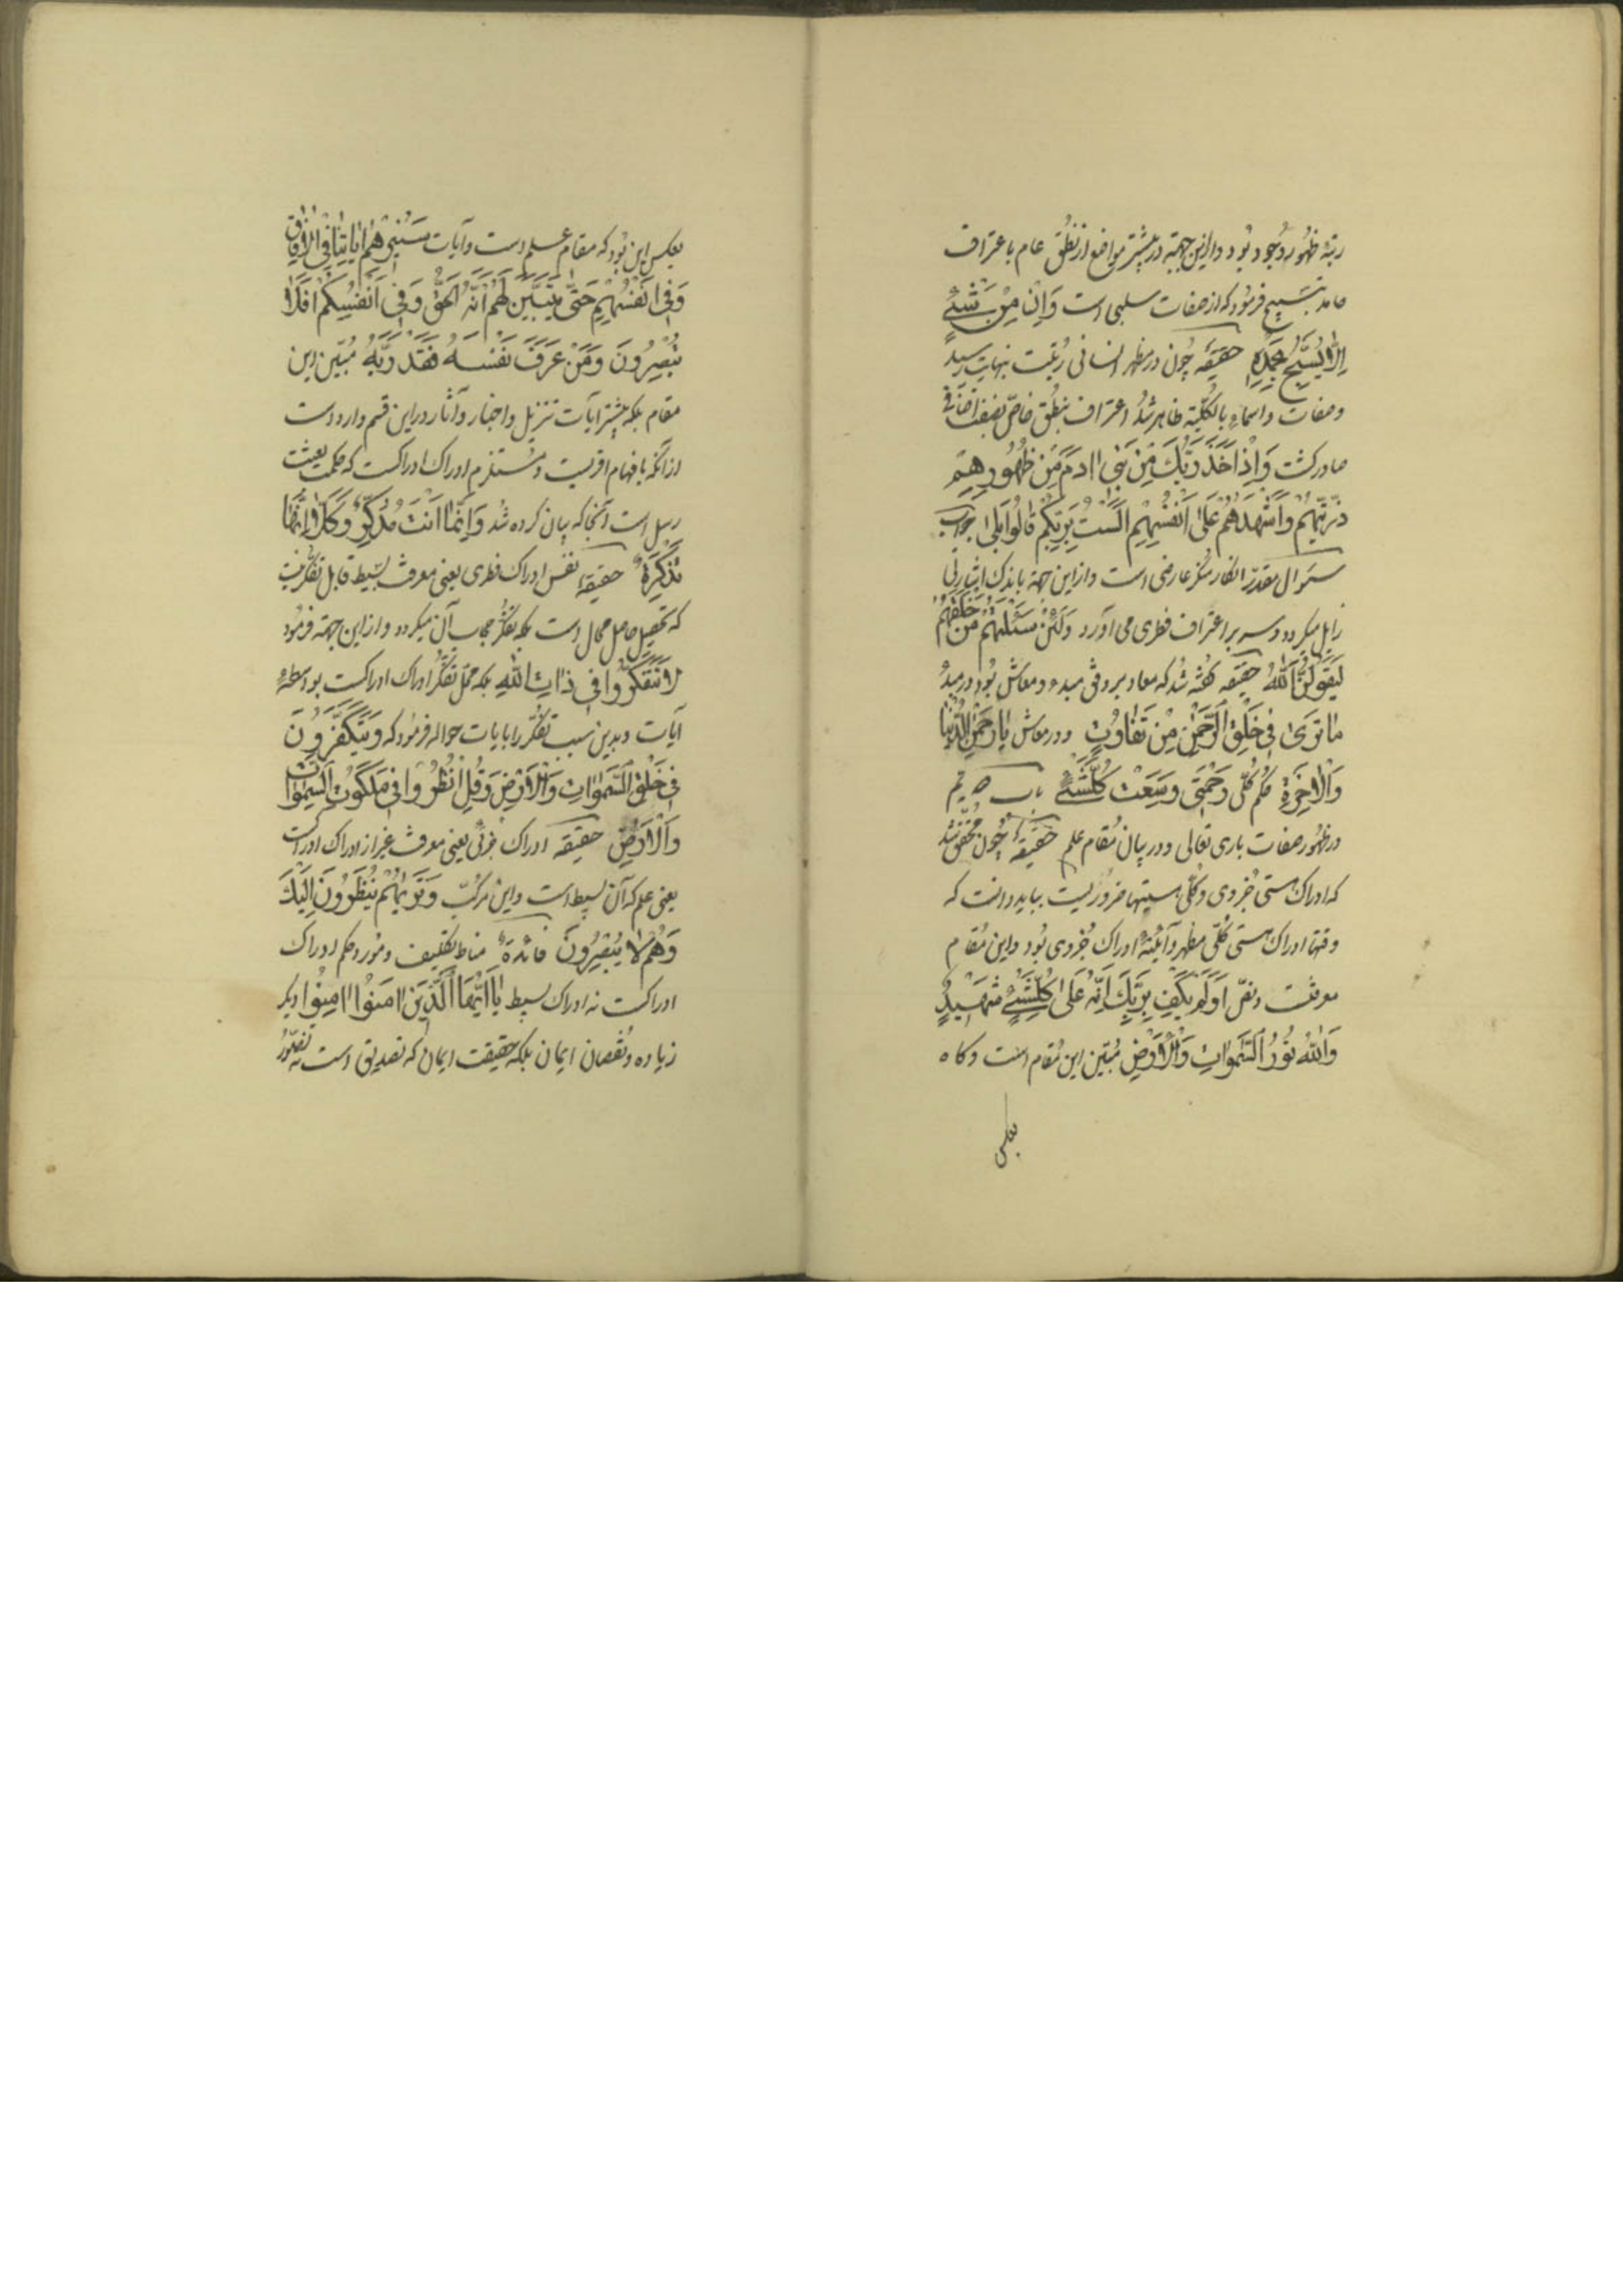 رتبهٔ ظهور وجود بود و ازین جهة در بیشتر مواضع از نطق عام باعتراف
حامد بتسبیح فرمود که از صفات سلبی است وَاِنْ مِنْ شَیْءٍ
اِلّا یُسَبِّحُ بِحَمْدِهِ حقیقة چون در مظهر انسانی رتبت بنهایت رسید
و صفات و اسماء بالکلیة ظاهر شد اعتراف بنطق خاص بصفت اضافی
صادر کشت وَاِذْ اَخَذَ رَبُّكَ مِنْ بَنی ادَمَ مِنْ ظُهُورِهِمْ
ذُرِّیَّتَهُمْ وَاَشْهَدَهُمْ عَلی اَنْفُسِهِمْ اَلَسْتُ بِرَبِّکُمْ قالُوا بَلی جواب
سئوال مقدر انکار منکر عارضی است و از این جهة باندک اشارتی
زایل میکردد و سر بر اعتراف فطری می آورد وَلَئِنْ سَئَلْتَهُمْ مَنْ خَلَقَهُمْ
لَیَقُولُنَّ اللّهُ حقیقه گفته شد که معاد بر وفق مبدء و معاش بود در مبدء
ما تَری فی خَلْقِ الرَّحْمنِ مِنْ تَفاوُتٍ و در معاش یا رَحْمنَ الدُّنْیا
وَالْاخِرَةِ حکم کلّ وَرَحْمَتی وَسِعَتْ کُلَّشَیْءٍ باب
در ظهور صفات باری تعالی و در بیان مقام علم حقیقة چون محقق شد
که ادراک هستی جزوی و کلّی هستیها ضروریست بباید دانست که
وقتها ادراک هستی کلّی مظهر و آینهٔ ادراک جزوی بود و این مقام
معرفتست و نصّ اَوَلَمْ یَکْفِ بِرَبِّكَ اَنَّهُ عَلی کُلِّشَیْءٍ شَهیدٌ
وَاللّهُ نُورُ السَّمواتِ وَالْاَرْضِ مبیّن این مقام است و کاه
بعکس
بعکس این بود که مقام علم است و آیات سَنُریهِمْ ایاتِنا فِی الْافاقِ
وَفی اَنْفُسِهِمْ حَتّی یَتَبَیَّنَ لَهُمْ اَنَّهُ الْحَقُّ وَفی اَنْفُسِکُمْ اَفَلا
تُبْصِرُونَ وَمَنْ عَرَفَ نَفْسَهُ فَقَدْ رَبَّهُ مبیّن این
مقام بلکه بیشتر آیات تنزیل و اخبار و آثار در این قسم وارد است
از آنکه بافهام اقربست و مستلزم ادراک ادراکست که حکمت بعثت
رسل است آنجا که بیان کرده شد وَاِنَّما اَنْتَ مُذَکِّرٌ وَکَلّا اِنَّها
تَذْکِرَةٌ حقیقة نفس ادراک فطری یعنی معرفت بسیط قابل تفکر نیست
که تحصیل حاصل محال است بلکه تفکر حجاب آن میکردد و از این جهة فرمود
لا تَتَفَکَّرُوا فی ذاتِ اللّهِ بلکه محلّ تفکر ادراک ادراکست بواسطهٔ
آیات و بدین سبب تفکر را بایات حواله فرمود که وَیَتَفَکَّرُونَ
فی خَلْقِ السَّمواتِ وَالْاَرْضِ وَقُلِ انْظُرُوا فی مَلَکُوتِ السَّمواتِ
وَالْاَرْضِ حقیقه ادراک جزئی یعنی معرفت غیر از ادراک ادراکست
یعنی علم که آن بسیط است و این مرکّب وَتَریهُمْ یَنْظُرُونَ اِلَیْكَ
وَهُمْ لا یُبْصِرُونَ فائدة مناط تکلیف و مورد حکم ادراک
ادراکست نه ادراک بسیط یا اَیُّهَا الَّذینَ امَنُوا امِنُوا دیگر
زیاده و نقصان ایمان بلکه حقیقت ایمان که تصدیق است نه تصوّر